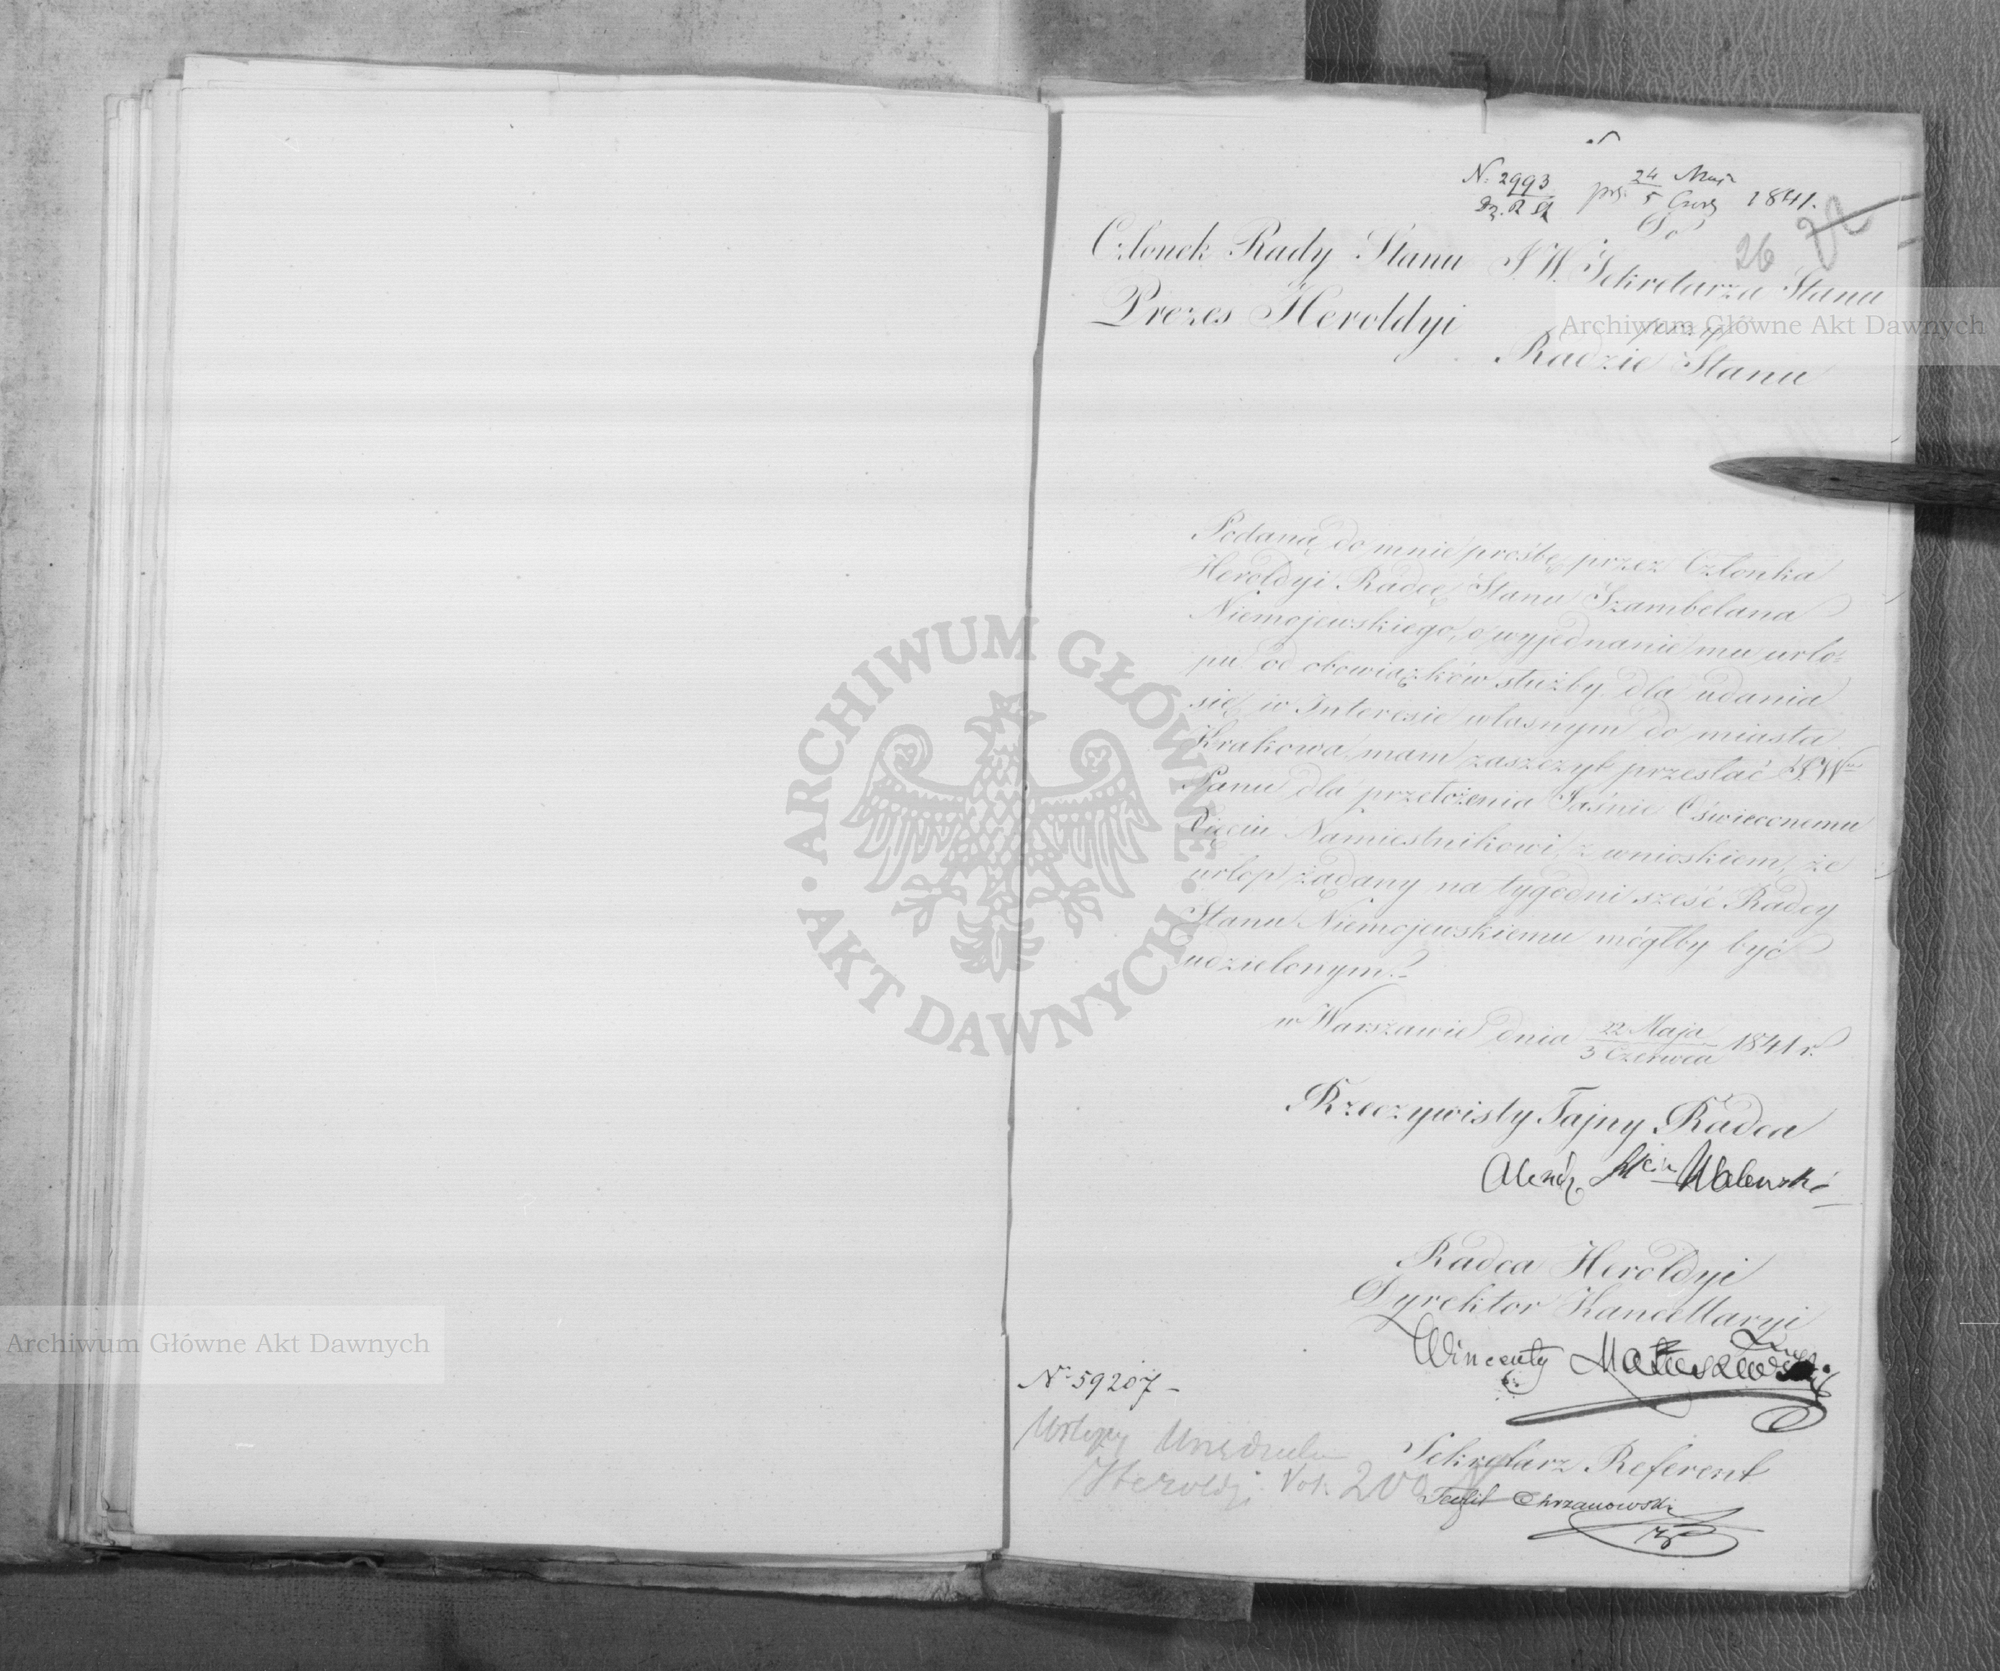 N: 2993
24 Maja
5 Czerw 1841.
Do
26
Członek Rady Stanu
Prezes Heroldyi
J.W. Sekretarza Stanu
przy
Radzie Stanu
Podaną do mnie prośbę przez Członka
Heroldyi Radcę Stanu Szambelana
Niemojewskiego, o wyjednanie mu urlo-
pu od obowiązków służby dla udania
się w Interesie własnym do miasta
Krakowa, mam zaszczyt przesłać JW
Panu dla przełożenia Jaśnie Oświeconemu
Xięciu Namiestnikowi, z wnioskiem, że
urlop żądany na tygodni sześć Radcy
Stanu Niemojewskiemu mógłby być
udzielonym.
w Warszawie dnia 22 Maja
3 Czerwca 1841 r.
Rzeczywisty Tajny Radca
Alexdr Walewski
Radca Heroldyi
Dyrektor Kancellaryi
Wincenty Matuszewski
N 59207
Urlopy
Heroldyi Vol. 200
Sekretarz Referent
Teofil Chrzanowski
Archiwum Główne Akt Dawnych
Archiwum Główne Akt Dawnych
ARCHIWUM GŁÓWNE · AKT DAWNYCH ·